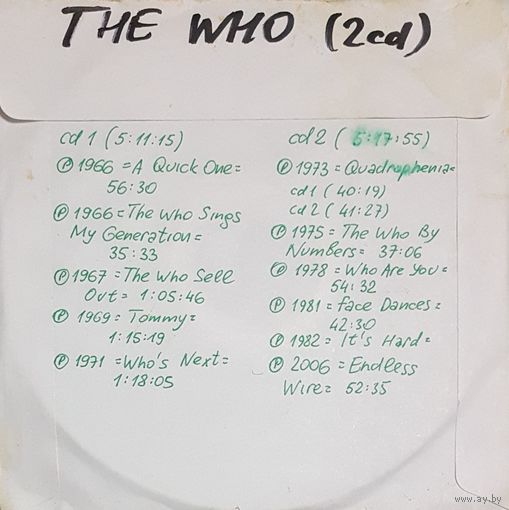 THE WHO (2cd)
cd 1 (5:11:15)
Ⓟ 1966 = A Quick One=
56:30
Ⓟ 1966 = The Who Sings
My Generation =
35:33
Ⓟ 1967 = The Who Sell
Out = 1:05:46
Ⓟ 1969 = Tommy =
1:15:19
Ⓟ 1971 = Who's Next =
1:18:05
cd 2 (5:17:55)
Ⓟ 1973 = Quadrophenia=
cd 1 (40:19)
cd 2 (41:27)
Ⓟ 1975 = The Who By
Numbers = 37:06
Ⓟ 1978 = Who Are You =
54:32
Ⓟ 1981 = Face Dances =
42:30
Ⓟ 1982 = It's Hard =
Ⓟ 2006 = Endless
Wire = 52:35
www.ay.by